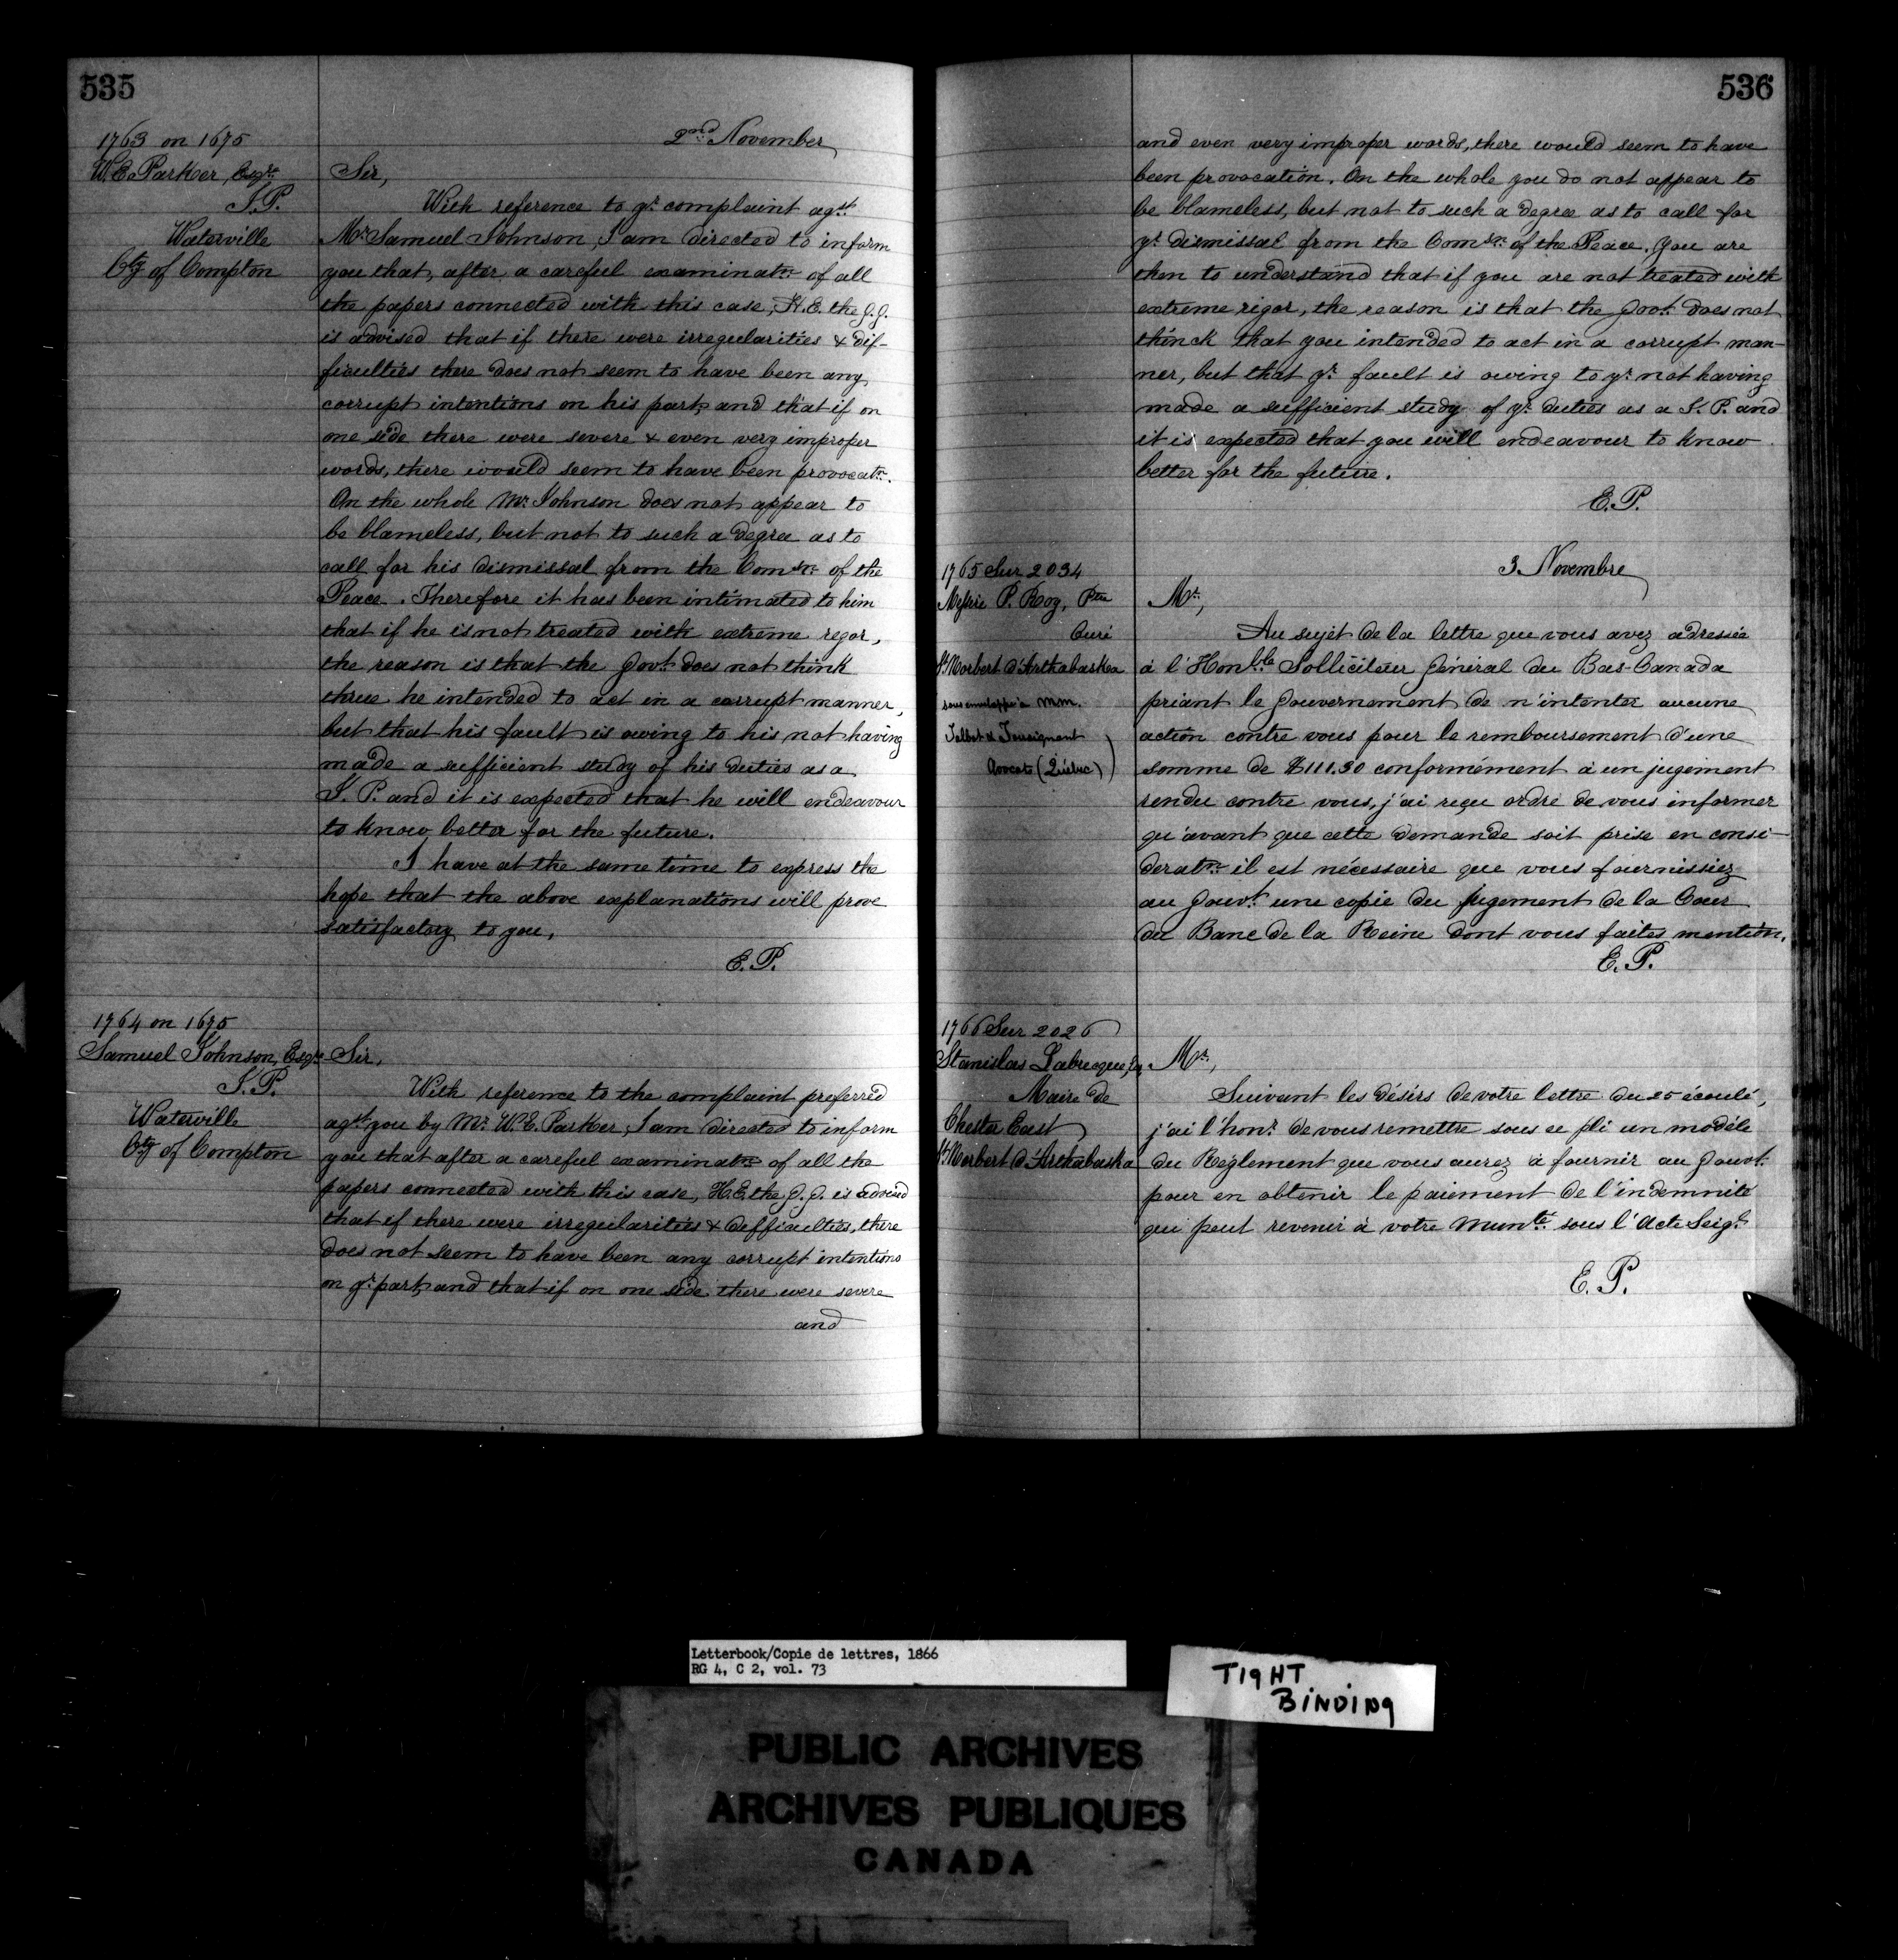 535
2nd November
1763 on 1675
W. E. Parker, Esqre
J.P.
Waterville
Cty of Compton
Sir,
With reference to yr complaint agst
Mr Samuel Johnson, I am directed to inform
you that, after a careful examinatn of all
the papers connected with this case, H.E. the G.G.
is advised that if there were irregularities & dif-
ficulties there does not seem to have been any
corrupt intentions on his part, and that if on
one side there were severe & even very improper
words, there would seem to have been provocatn.
On the whole Mr Johnson does not appear to
be blameless, but not to such a degree as to
call for his dismissal from the Comsn of the
Peace. Therefore it has been intimated to him
that if he is not treated with extreme regor,
the reason is that the Govt does not think
he intended to act in a corrupt manner,
but that his fault is owing to his not having
made a sufficient study of his duties as a
J. P. and it is expected that he will endeavour
to know better for the future.
I have at the same time to express the
hope that the above explanations will prove
satisfactory to you,
E.P.
1764 on 1675
Samuel Johnson, Esqre
J.P.
Waterville
Cty of Compton
Sir,
With reference to the complaint preferred
agst you by Mr W.E. Parker, I am directed to inform
you that after a careful examinatn of all the
papers connected with this case, H.E. the G.G. is advised
that if there were irregularities & difficulties, there
does not seem to have been any corrupt intentions
on yr part, and that if on one side there were severe
and
536
and even very improper words, there would seem to have
been provocation. On the whole you do not appear to
be blameless, but not to such a degree as to call for
yr dismissal from the Comsn of the Peace. You are
then to understand that if you are not treated with
extreme rigor, the reason is that the Govt does not
thinck that you intended to act in a corrupt man-
ner, but that yr fault is owing to yr not having
made a sufficient study of yr duties as a J. P. and
it is expected that you will endeavour to know
better for the future.
E.P.
3 Novembre
1765 Sur 2034
Messire P. Roy, Ptre
Curé
St Norbert d'Arthabaska
sous enveloppe à MM.
Talbot et Tousignant
Avocats (Québec)
Mr,
Au sujet de la lettre que vous avez adressée
à l'Honble Solliciteur Général du Bas-Canada
priant le Gouvernement de n'intenter aucune
action contre vous pour le remboursement d'une
somme de $111.30 conformément à un jugement
rendu contre vous, j'ai reçu ordre de vous informer
qu'avant que cette demande soit prise en consi-
deratn il est nécessaire que vous fournissiez
au Gouvt une copie du jugement de la Cour
du Banc de la Reine dont vous faites mention.
E.P.
1766 Sur 2026
Stanislas Labrecque, Ecr
Maire de
Chester East
St Norbert d'Arthabaska
Mr,
Suivant les désirs de votre lettre du 25 écoulé,
j'ai l'honr de vous remettre sous ce pli un modèle
du Règlement que vous aurez à fournir au Gouvt
pour en obtenir le paiement de l'indemnité
qui peut revenir à votre Munté sous l'Acte Seigl
E.P.
Letterbook/Copie de lettres, 1866
RG 4, C 2, vol. 73
TIGHT
BINDING
PUBLIC ARCHIVES
ARCHIVES PUBLIQUES
CANADA